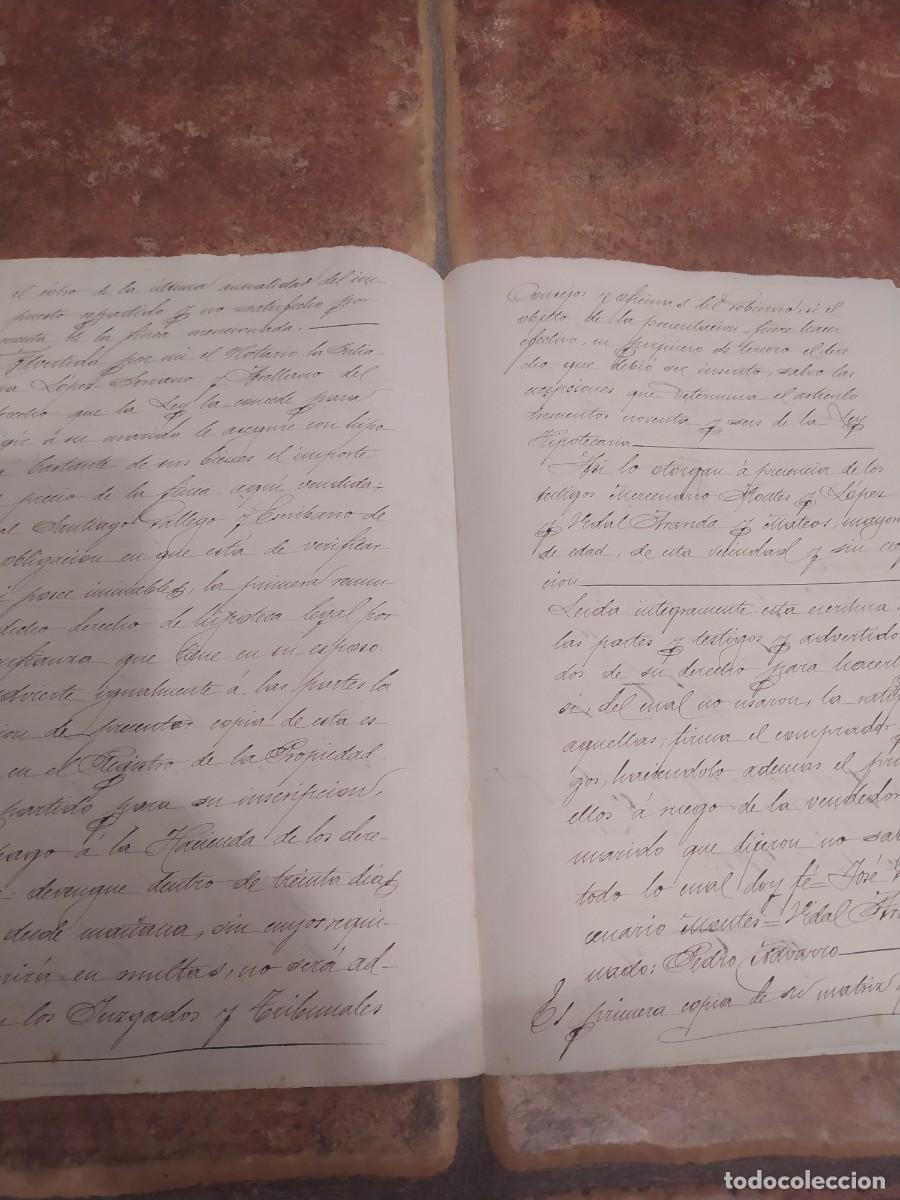 el cobro de la última anualidad del im-
puesto repartido y no satisfecho por
cuenta de la finca mencionada.
Advertida por mi el Notario la Julia-
na López Serrano y Arellano del
derecho que la Ley la concede para
gir á su marido le asegure con hipo-
bastante de sus bienes el importe
precio de la finca aquí vendida;
al Santiago Gallego y Escribano de
obligacion en que está de verificar
posee inmuebles, la primera renun-
dicho derecho de hipoteca legal por
nfianza que tiene en su esposo.
advierte igualmente á las partes la
cion de presentar copia de esta es
en el Registro de la Propiedad
partido para su inscripcion,
pago á la Hacienda de los dere-
devengue dentro de treinta dias
desde mañana, sin cuyo requi-
rirá en multas, no será ad-
n los Juzgados y Tribunales
Consejos y oficinas del Gobierno, si el
objeto de la presentacion fuere hacer
efectivo, en perjuicio de tercero el dere-
cho que debió ser inscrito, salvo las
excepciones que determina el artículo
trescientos noventa y seis de la Ley
Hipotecaria
Así lo otorgan á presencia de los
testigos Mercenario y López
y Vidal Aranda y Mateos, mayor
de edad, de esta vecindad y sin ex
cion
Leida integramente esta escritura
las partes y testigos y advertido
dos de su derecho para hacerl
si, del cual no usaron, la ratif
aquellas; firma el comprador
gos, haciendolo ademas el pri
ellos á ruego de la vendedor
marido que dijeron no sab
todo lo cual doy fé = José
cenario Montes = Vidal Ara
nado: Pedro Navarro
Es primera copia de su matriz
todocoleccion